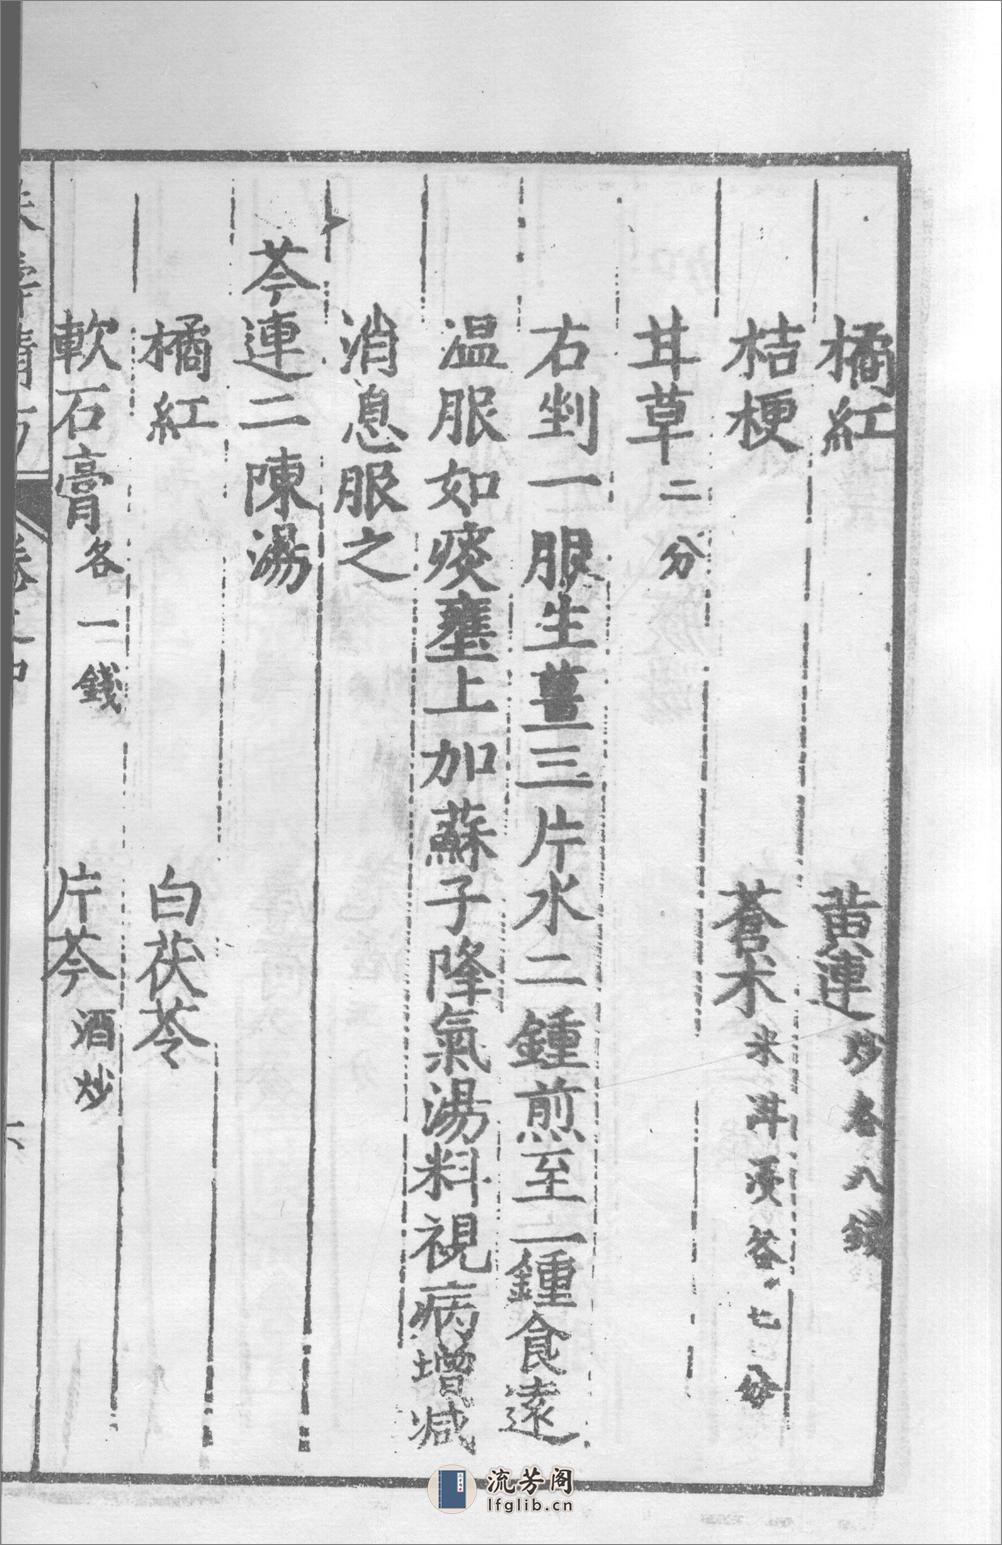 橘紅　黄連炒各八錢
桔梗　蒼术米泔浸各七分
甘草二分
右剉一服生薑三片水二鍾煎至一鍾食遠
温服如痰壅上加蘇子降氣湯料視病增减
消息服之
芩連二陳湯
橘紅　白茯苓
軟石膏各一錢　片芩酒炒
流芳阁
lfglib.cn